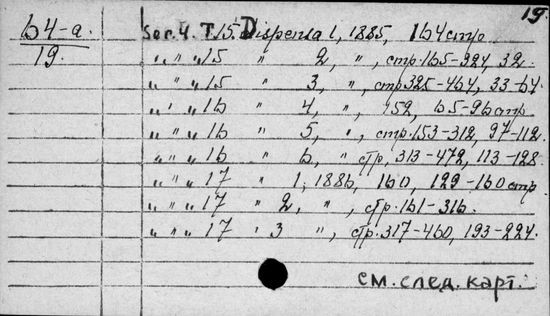 19.
64-a. Ser. 4. T. 15. Dispensa 1, 1885, 164 стр
19. „ „ „ 15 „ 2, „, стр. 165-324, 32.
„ „ „ 15 „ 3, „, стр 325-464, 33-64
„ „ „ 16 „ 4, „, 152, 65-96 стр
„ „ „ 16 „ 5, „, стр. 153-312, 97-112
„ „ „ 16 „ 6, „ стр. 313-472, 113-128
„ „ „ 17 „ 1, 1886, 160, 129-160 стр
„ „ „ 17 „ 2, „, стр. 161-316.
„ „ „ 17 „ 3 „, стр. 317-460, 193-224.
см. след. карт.